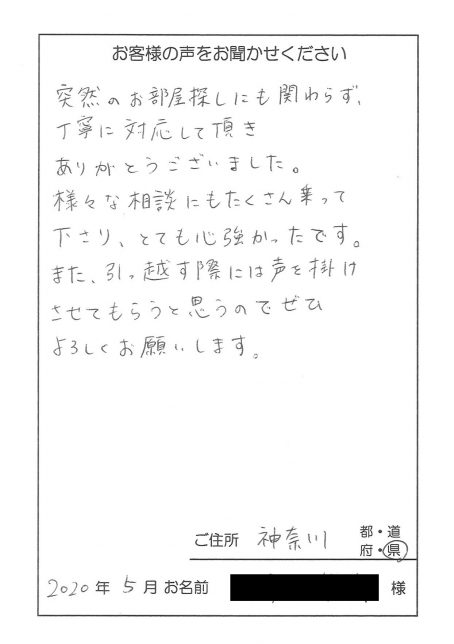 お客様の声をお聞かせください
突然のお部屋探しにも関わらず、
丁寧に対応して頂き
ありがとうございました。
様々な相談にもたくさん乗って
下さり、とても心強かったです。
また、引っ越す際には声を掛け
させてもらうと思うのでぜひ
よろしくお願いします。
ご住所 神奈川 都・道
府・県
2020年 5月 お名前 様